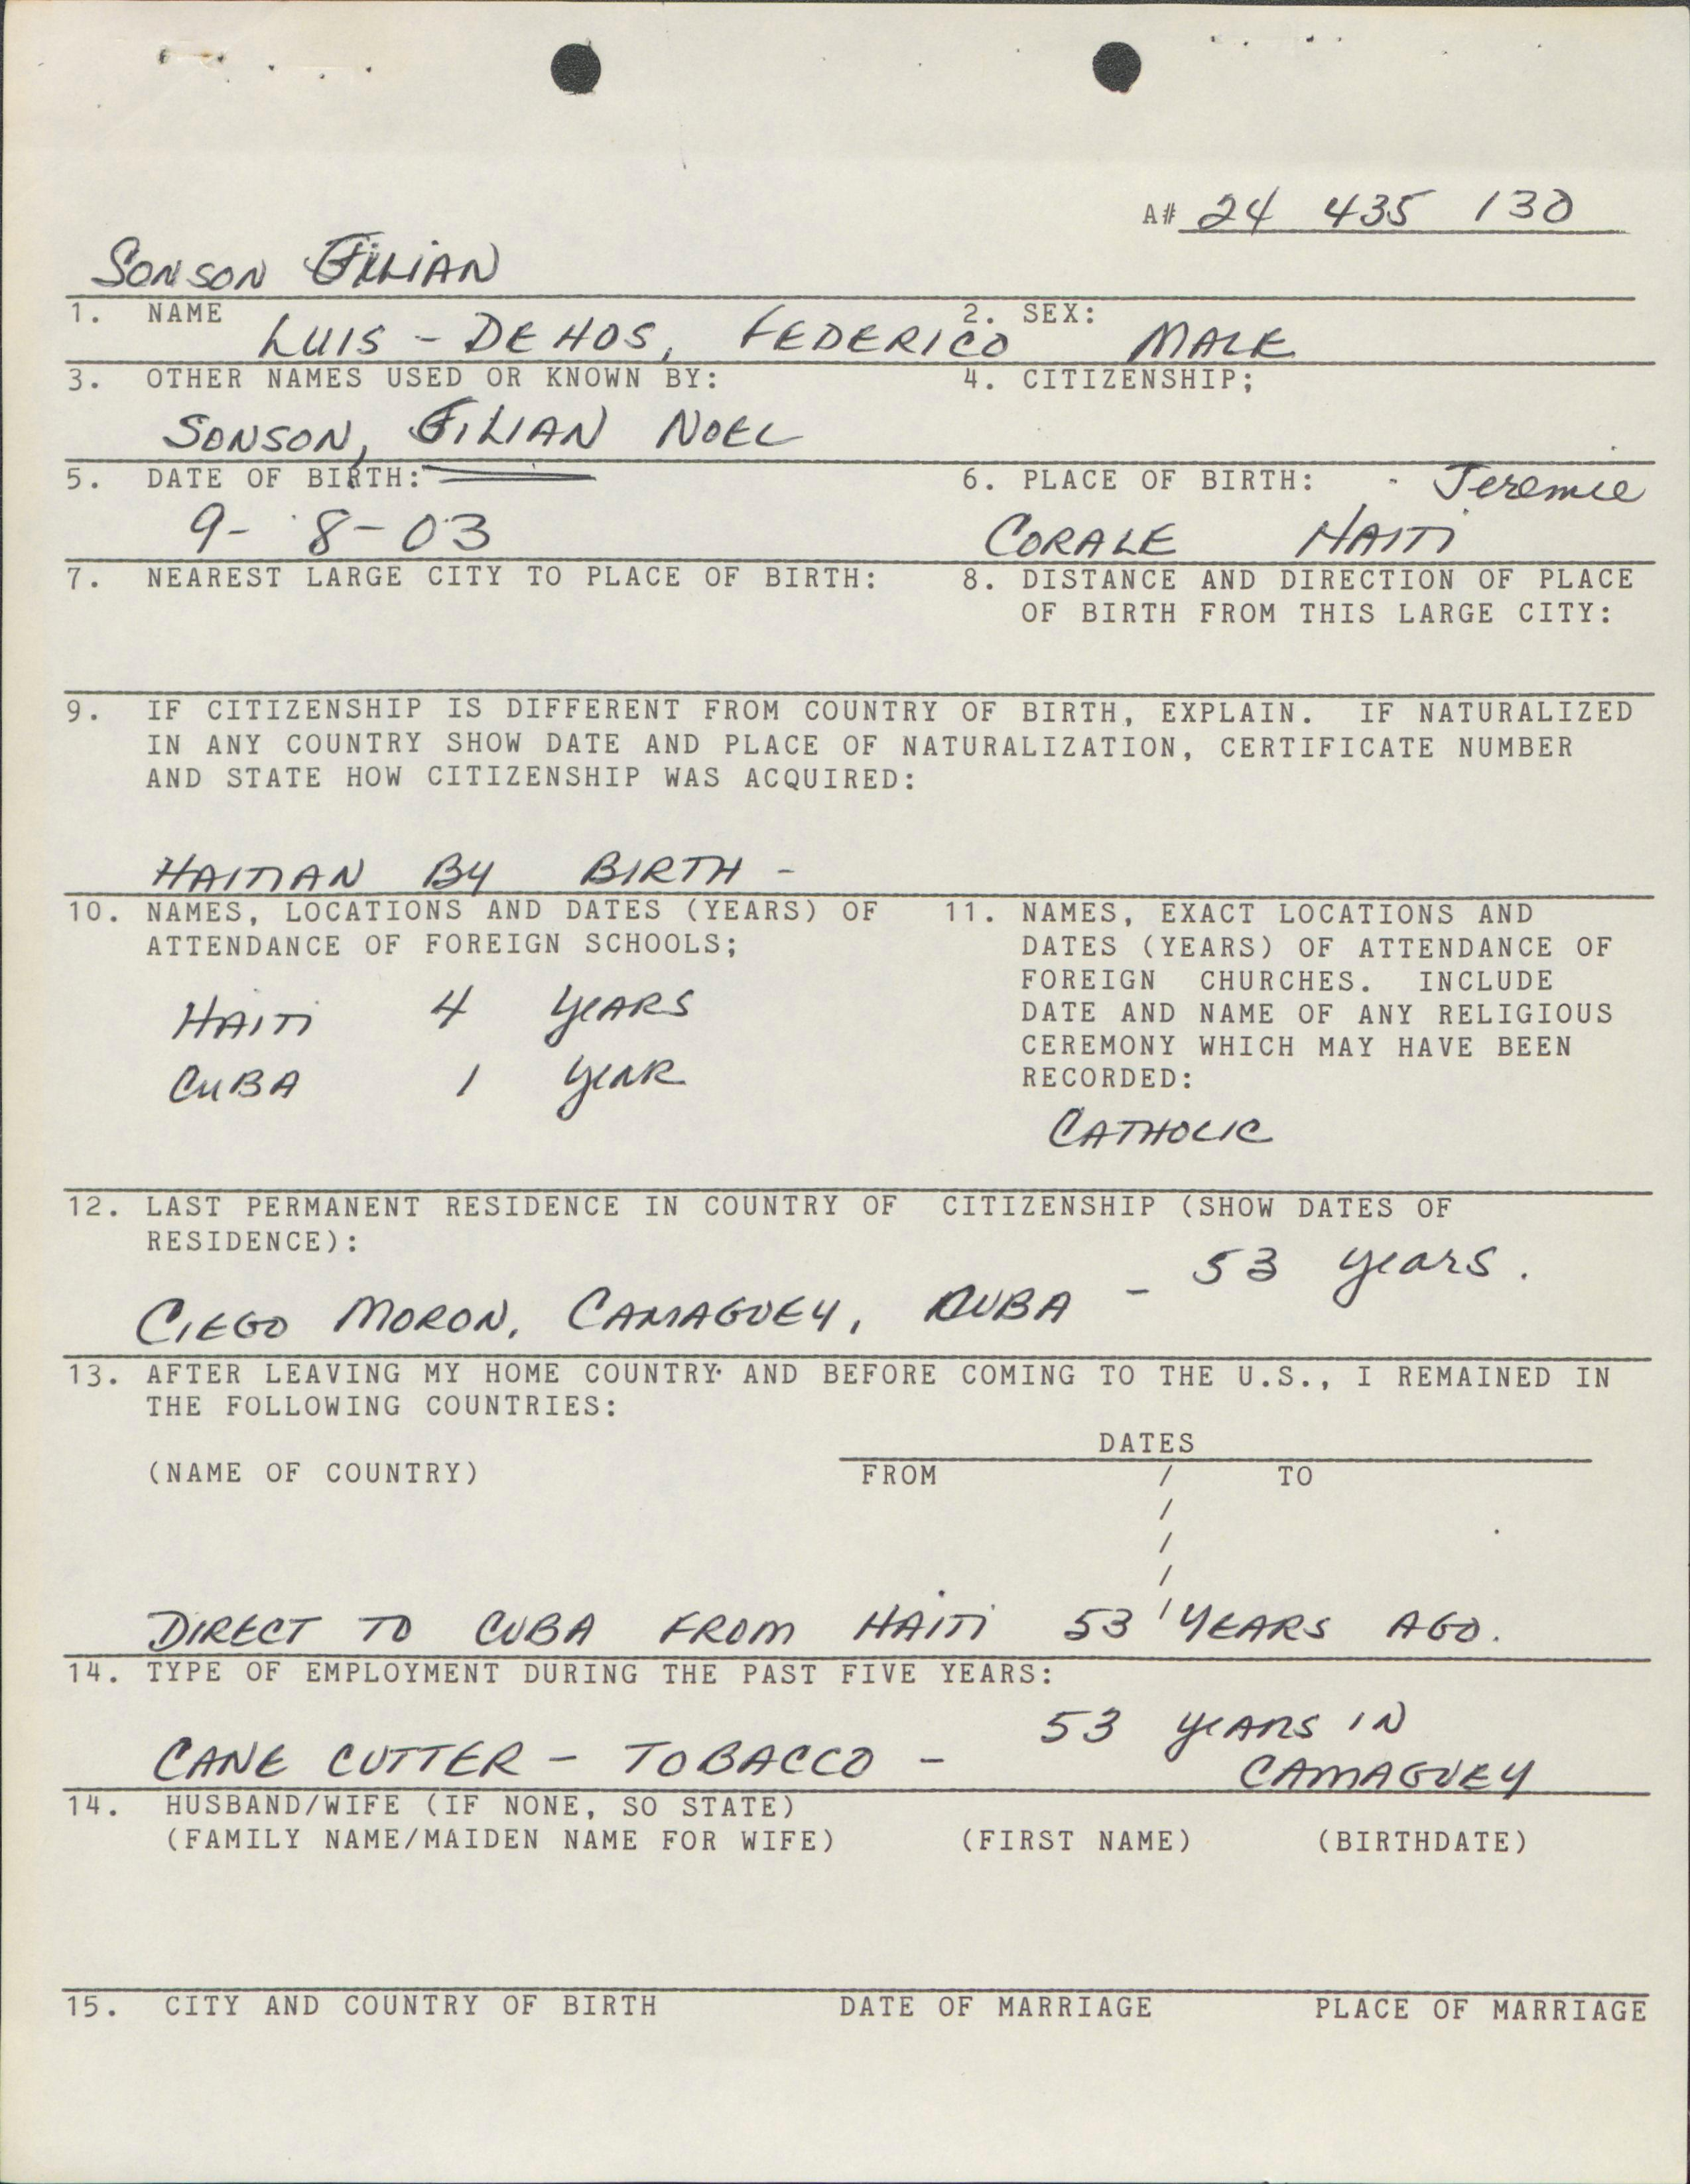 A# 24 435 130
SONSON FILIAN
1. NAME
2. SEX:
LUIS - DEHOS, FEDERICO MALE
3. OTHER NAMES USED OR KNOWN BY:
4. CITIZENSHIP;
SONSON, FILIAN NOEL
5. DATE OF BIRTH:
6. PLACE OF BIRTH: - Jeremie
9- 8-03
CORALE HAITI
7. NEAREST LARGE CITY TO PLACE OF BIRTH:
8. DISTANCE AND DIRECTION OF PLACE
OF BIRTH FROM THIS LARGE CITY:
9. IF CITIZENSHIP IS DIFFERENT FROM COUNTRY OF BIRTH, EXPLAIN. IF NATURALIZED
IN ANY COUNTRY SHOW DATE AND PLACE OF NATURALIZATION, CERTIFICATE NUMBER
AND STATE HOW CITIZENSHIP WAS ACQUIRED:
HAITIAN BY BIRTH -
10. NAMES, LOCATIONS AND DATES (YEARS) OF
ATTENDANCE OF FOREIGN SCHOOLS;
HAITI 4 YEARS
CUBA 1 YEAR
11. NAMES, EXACT LOCATIONS AND
DATES (YEARS) OF ATTENDANCE OF
FOREIGN CHURCHES. INCLUDE
DATE AND NAME OF ANY RELIGIOUS
CEREMONY WHICH MAY HAVE BEEN
RECORDED:
CATHOLIC
12. LAST PERMANENT RESIDENCE IN COUNTRY OF CITIZENSHIP (SHOW DATES OF
RESIDENCE):
CIEGO MORON, CAMAGUEY, CUBA - 53 years.
13. AFTER LEAVING MY HOME COUNTRY AND BEFORE COMING TO THE U.S., I REMAINED IN
THE FOLLOWING COUNTRIES:
DATES
(NAME OF COUNTRY) FROM / TO
/
/
/
DIRECT TO CUBA FROM HAITI 53 / YEARS AGO.
14. TYPE OF EMPLOYMENT DURING THE PAST FIVE YEARS:
CANE CUTTER - TOBACCO - 53 YEARS IN
CAMAGUEY
14. HUSBAND/WIFE (IF NONE, SO STATE)
(FAMILY NAME/MAIDEN NAME FOR WIFE) (FIRST NAME) (BIRTHDATE)
15. CITY AND COUNTRY OF BIRTH DATE OF MARRIAGE PLACE OF MARRIAGE